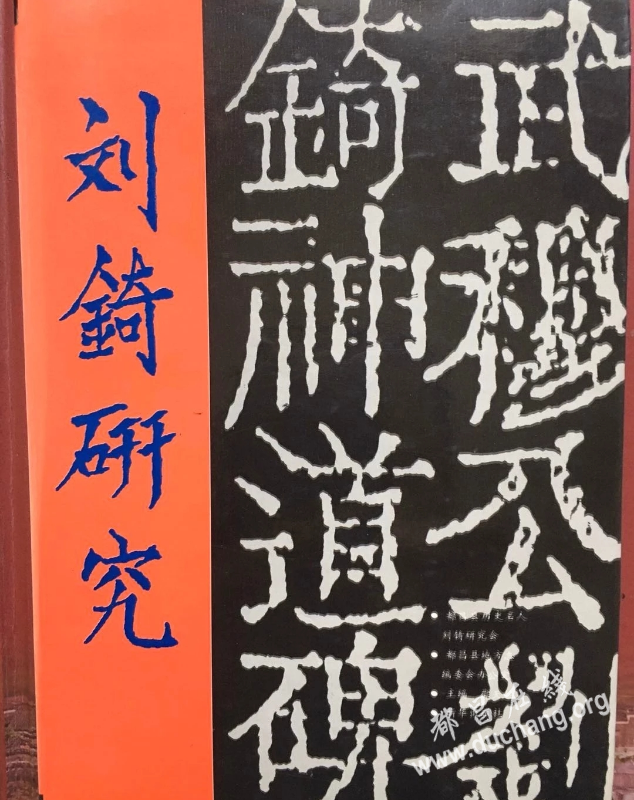 刘錡研究
武穆公劉
錡神道碑
都昌县历史名人
刘錡研究会
都昌县地方
编委会办
主编
都昌在线
www.duchang.org